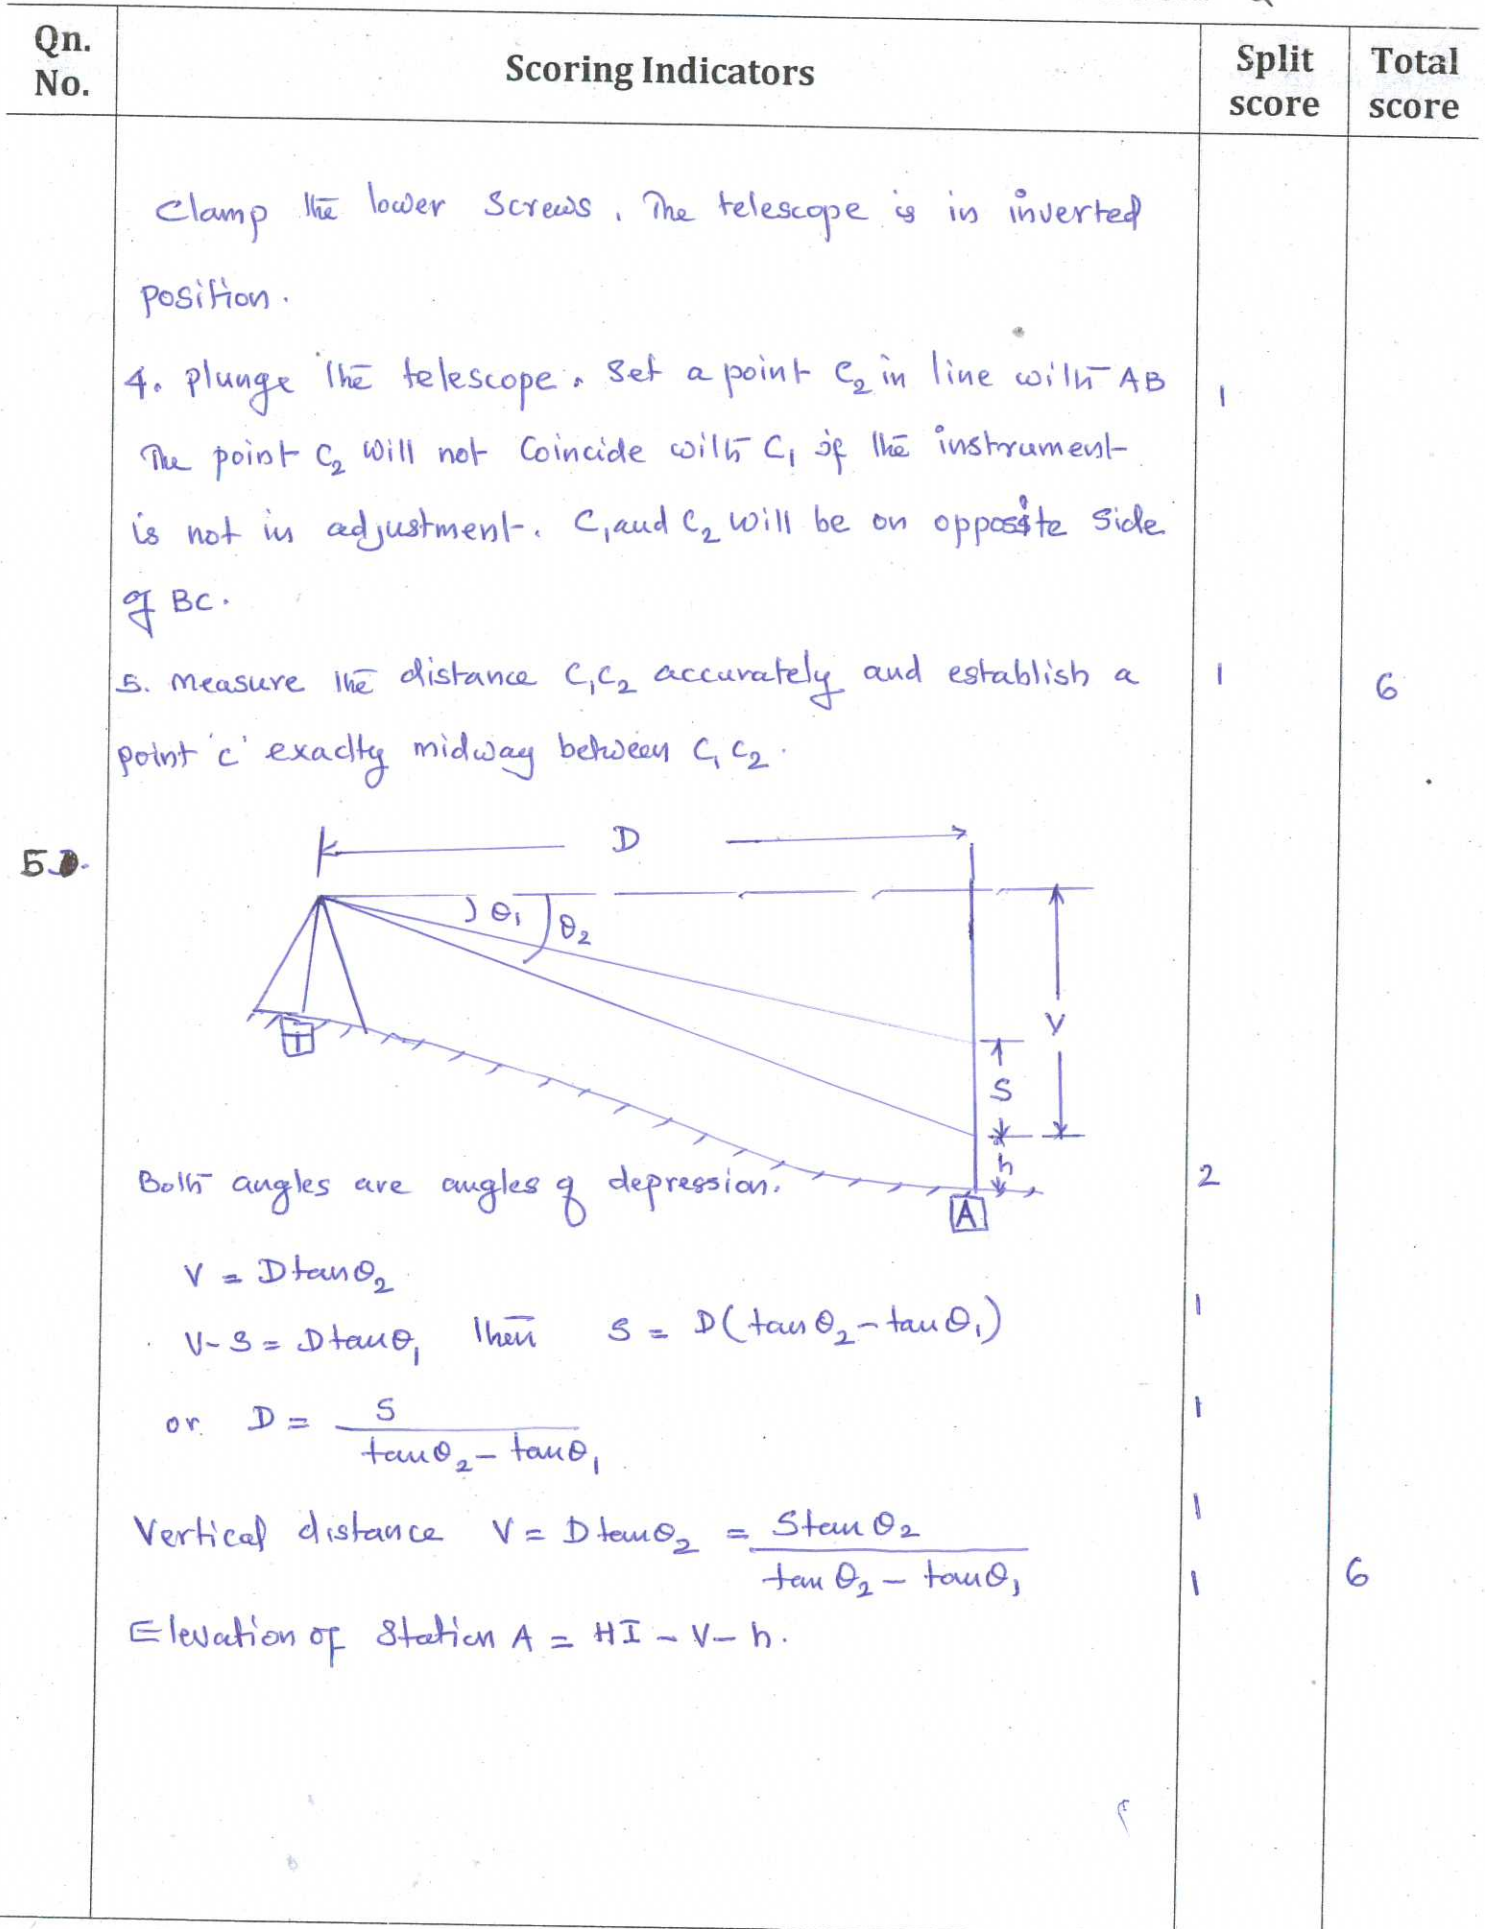 Qn. No.
Scoring Indicators
Split score
Total score
Clamp the lower screws. The telescope is in inverted
position.
4. Plunge the telescope. Set a point C₂ in line with AB
1
The point C₂ will not Coincide with C₁ if the instrument
is not in adjustment. C₁ and C₂ will be on opposite side
of BC.
5. Measure the distance C₁C₂ accurately and establish a
1
6
point 'c' exactly midway between C₁ C₂.
5
D
θ₁
θ₂
V
T
S
h
Both angles are angles of depression.
2
A
V = D tan θ₂
1
V - S = D tan θ₁ then S = D(tan θ₂ - tan θ₁)
or D = S / (tan θ₂ - tan θ₁)
1
Vertical distance V = D tan θ₂ = S tan θ₂ / (tan θ₂ - tan θ₁)
1
1
6
Elevation of Station A = HI - V - h.